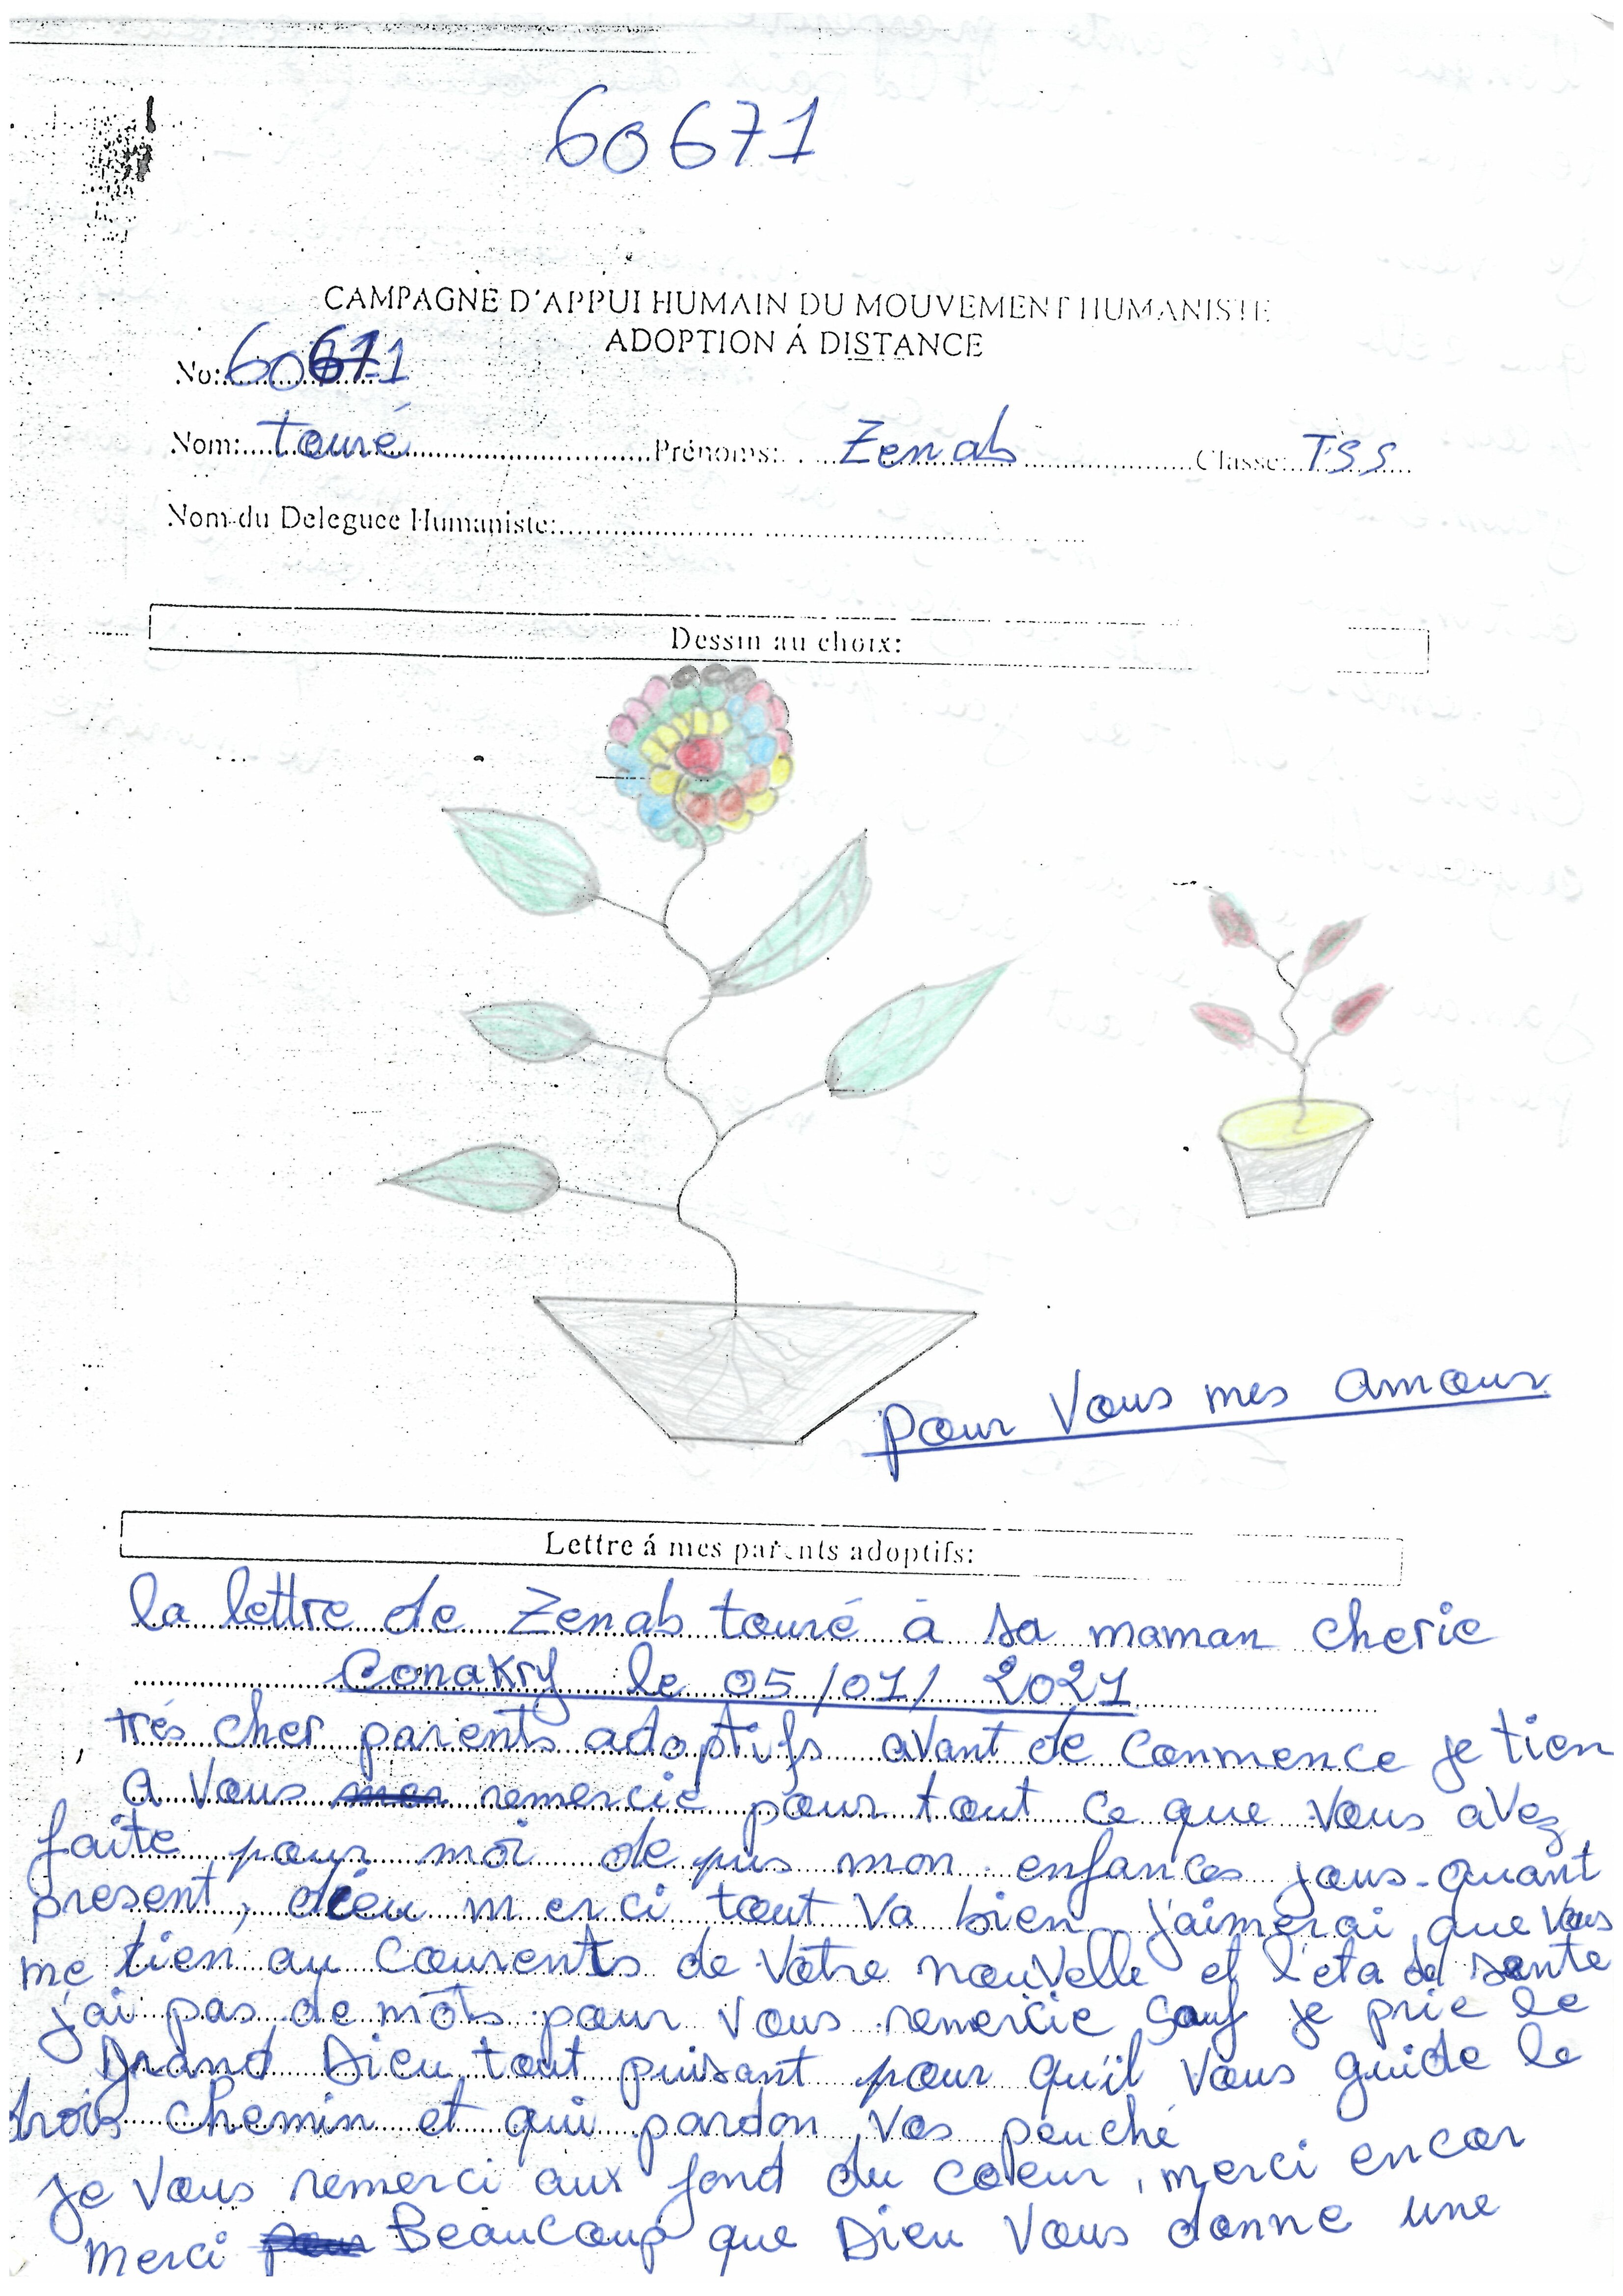 60671
CAMPAGNE D'APPUI HUMAIN DU MOUVEMENT HUMANISTE
ADOPTION Á DISTANCE
No: 60671
Nom: touré Prénoms: Zenab Classe: TSS
Nom du Deleguee Humaniste:
Dessin au choix:
pour Vous mes amour
Lettre á mes parents adoptifs:
la lettre de Zenab touré à sa maman cherie
Conakry le 05/01/2021
trés cher parents adoptifs avant de Conmence je tien
a Vous remercie pour tout ce que vous avez
faite pour moi de puis mon enfances jous-quant
present, dieu merci tout va bien j'aimerai que vous
me tien au Courents de Votre nouvelle et l'eta de sante
j'ai pas de mots pour vous remercie Sauf je prie le
Grand Dieu tout puisant pour qu'il vous guide le
drois chemin et qui pardon vos peuché
je vous remerci aux fond du coeur, merci encor
merci Beaucoup que Dieu Vous donne une